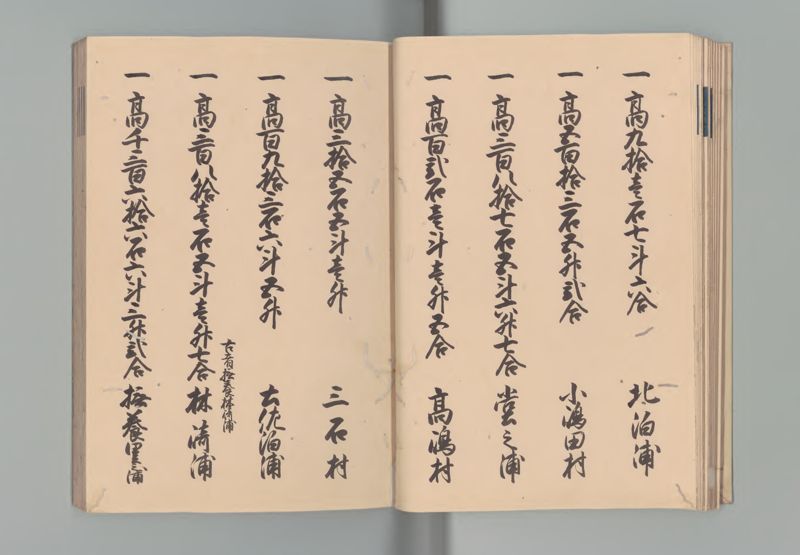 一 高九拾壱石七斗六合 北泊浦
一 高五百拾三石五升弐合 小嶋田村
一 高三百八拾七石五斗六升七合 堂之浦
一 高百弐石壱斗壱升五合 高嶋村
一 高三拾五石五斗壱升 三石村
一 高百九拾三石六斗五升 土佐泊浦
一 高三百八拾壱石五斗壱升七合 林崎浦
一 高千三百六拾六石六斗三升弐合 撫養里浦